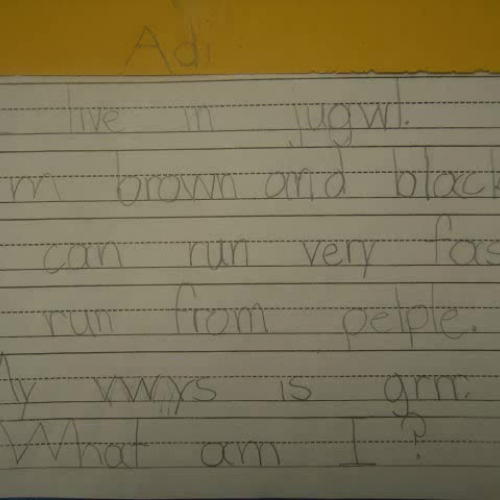 Adi
live in jugwl.
m brown and black
can run very fas
run from petple.
My vwys is grrr.
What am I?